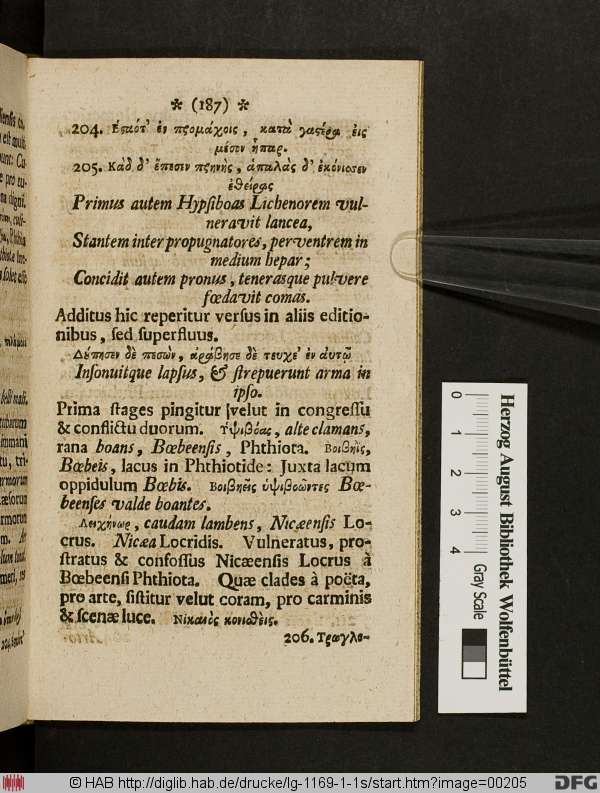 * (187) *
204. Ἑσαότ' ἐν προμάχοις, κατὰ γαστέρα εἰς
μέσον ἧπαρ.
205. Κὰδ δ' ἔπεσεν πρηνὴς, ἁπαλὰς δ' ἐκόνισσεν
ἐθείρας
Primus autem Hypsiboas Lichenorem vul-
neravit lancea,
Stantem inter propugnatores, per ventrem in
medium hepar;
Concidit autem pronus, tenerasque pulvere
fœdavit comas.
Additus hic reperitur versus in aliis editio-
nibus, sed superfluus.
Δύπησεν δὲ πεσὼν, ἀράβησε δὲ τευχε' ἐν αυτῷ
Insonuitque lapsus, & strepuerunt arma in
ipso.
Prima stages pingitur velut in congressu
& conflictu duorum. ὑψιβόας, alte clamans,
rana boans, Bœbeensis, Phthiota. Βοιβηῒς,
Bœbeis, lacus in Phthiotide: Juxta lacum
oppidulum Bœbis. Βοιβηεῖς ὑψιβοῶντες Bœ-
beenses valde boantes.
Λειχήνωρ, caudam lambens, Nicæensis Lo-
crus. Nicæa Locridis. Vulneratus, pro-
stratus & confossus Nicæensis Locrus à
Bœbeensi Phthiota. Quæ clades à poëta,
pro arte, sistitur velut coram, pro carminis
& scenæ luce. Νικαιὸς κονιαθείς.
206. Τρωγλο-
0 1 2 3 4
Gray Scale
Herzog August Bibliothek Wolfenbüttel
© HAB http://diglib.hab.de/drucke/lg-1169-1-1s/start.htm?image=00205
DFG